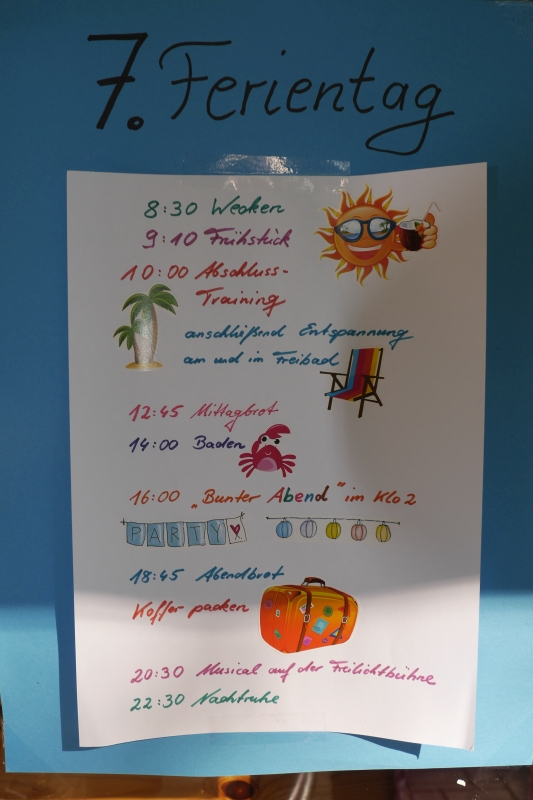 7. Ferientag
8:30 Wecken
9:10 Frühstück
10:00 Abschluss-
Training
anschließend Entspannung
am und im Freibad
12:45 Mittagbrot
14:00 Baden
16:00 „Bunter Abend" im Klo 2
PARTY
18:45 Abendbrot
Koffer packen
20:30 Musical auf der Freilichtbühne
22:30 Nachtruhe